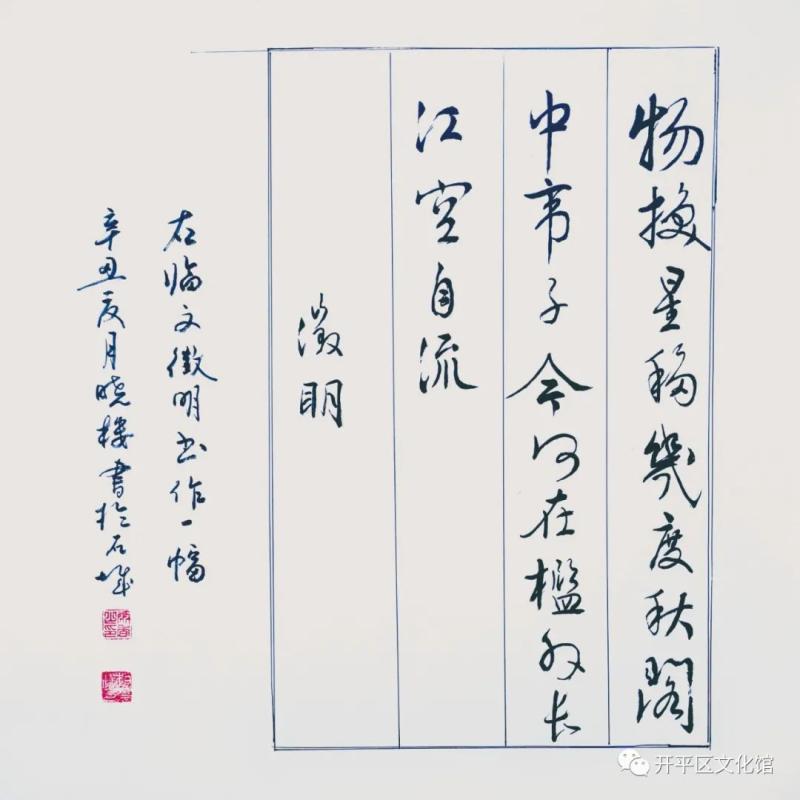 物換星移幾度秋閣
中帝子今何在檻外長
江空自流
徵明
右临文徵明书作一幅
辛丑夏月晓楼書於石城
开平区文化馆